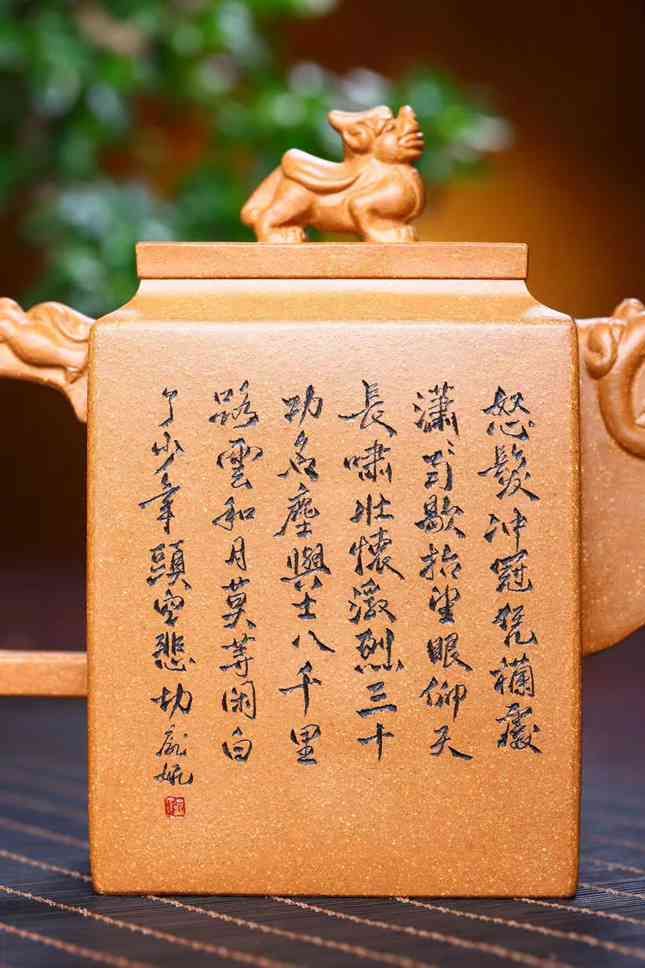 怒髮冲冠凭欄處
瀟〻雨歇抬望眼仰天
長嘯壯懷激烈三十
功名塵與土八千里
路雲和月莫等闲白
了少年頭空悲切